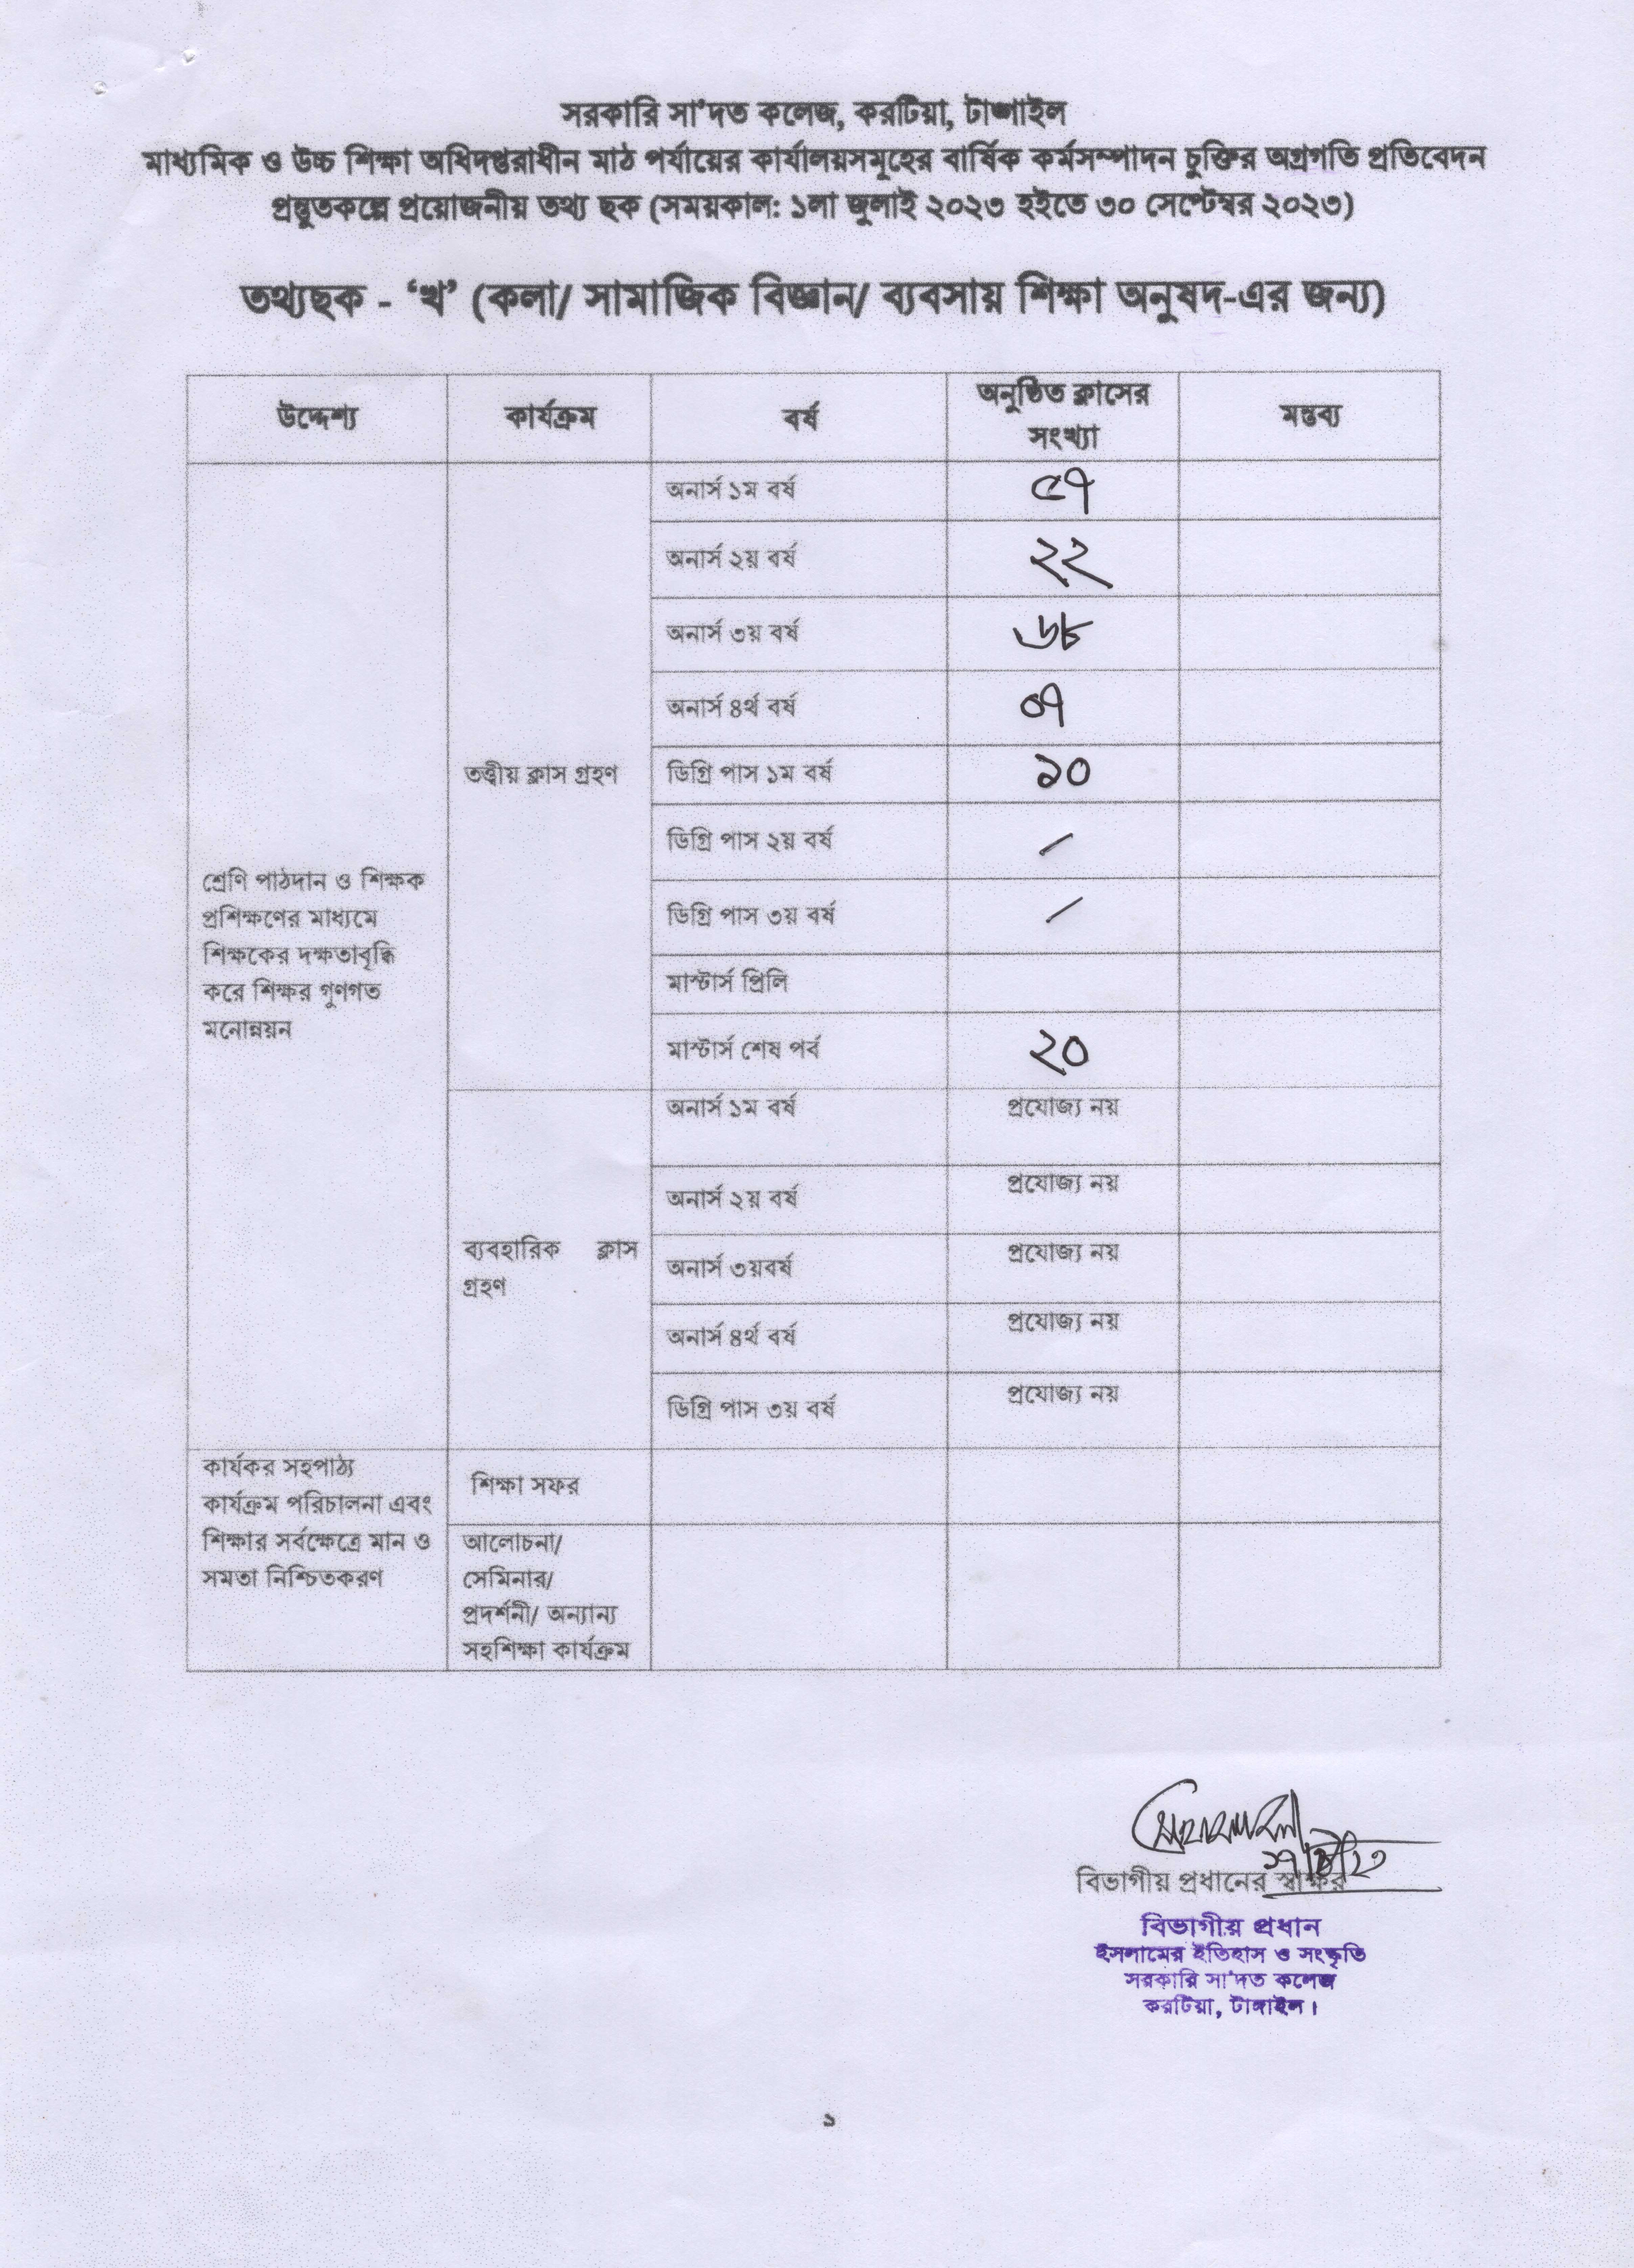 সরকারি সা'দত কলেজ, করটিয়া, টাঙ্গাইল
মাধ্যমিক ও উচ্চ শিক্ষা অধিদপ্তরাধীন মাঠ পর্যায়ের কার্যালয়সমূহের বার্ষিক কর্মসম্পাদন চুক্তির অগ্রগতি প্রতিবেদন
প্রস্তুতকল্পে প্রয়োজনীয় তথ্য ছক (সময়কাল: ১লা জুলাই ২০২৩ হইতে ৩০ সেপ্টেম্বর ২০২৩)
তথ্যছক - ‘খ’ (কলা/ সামাজিক বিজ্ঞান/ ব্যবসায় শিক্ষা অনুষদ-এর জন্য)
উদ্দেশ্য কার্যক্রম বর্ষ অনুষ্ঠিত ক্লাসের সংখ্যা মন্তব্য
শ্রেণি পাঠদান ও শিক্ষক
প্রশিক্ষণের মাধ্যমে
শিক্ষকের দক্ষতাবৃদ্ধি
করে শিক্ষর গুণগত
মনোন্নয়ন
তত্ত্বীয় ক্লাস গ্রহণ
অনার্স ১ম বর্ষ ৫৭
অনার্স ২য় বর্ষ ২২
অনার্স ৩য় বর্ষ ৬৮
অনার্স ৪র্থ বর্ষ ০৭
ডিগ্রি পাস ১ম বর্ষ ১০
ডিগ্রি পাস ২য় বর্ষ /
ডিগ্রি পাস ৩য় বর্ষ /
মাস্টার্স প্রিলি
মাস্টার্স শেষ পর্ব ২০
ব্যবহারিক ক্লাস
গ্রহণ
অনার্স ১ম বর্ষ প্রযোজ্য নয়
অনার্স ২য় বর্ষ প্রযোজ্য নয়
অনার্স ৩য়বর্ষ প্রযোজ্য নয়
অনার্স ৪র্থ বর্ষ প্রযোজ্য নয়
ডিগ্রি পাস ৩য় বর্ষ প্রযোজ্য নয়
কার্যকর সহপাঠ্য
কার্যক্রম পরিচালনা এবং
শিক্ষার সর্বক্ষেত্রে মান ও
সমতা নিশ্চিতকরণ
শিক্ষা সফর
আলোচনা/
সেমিনার/
প্রদর্শনী/ অন্যান্য
সহশিক্ষা কার্যক্রম
বিভাগীয় প্রধানের স্বাক্ষর
বিভাগীয় প্রধান
ইসলামের ইতিহাস ও সংস্কৃতি
সরকারি সা'দত কলেজ
করটিয়া, টাঙ্গাইল।
১